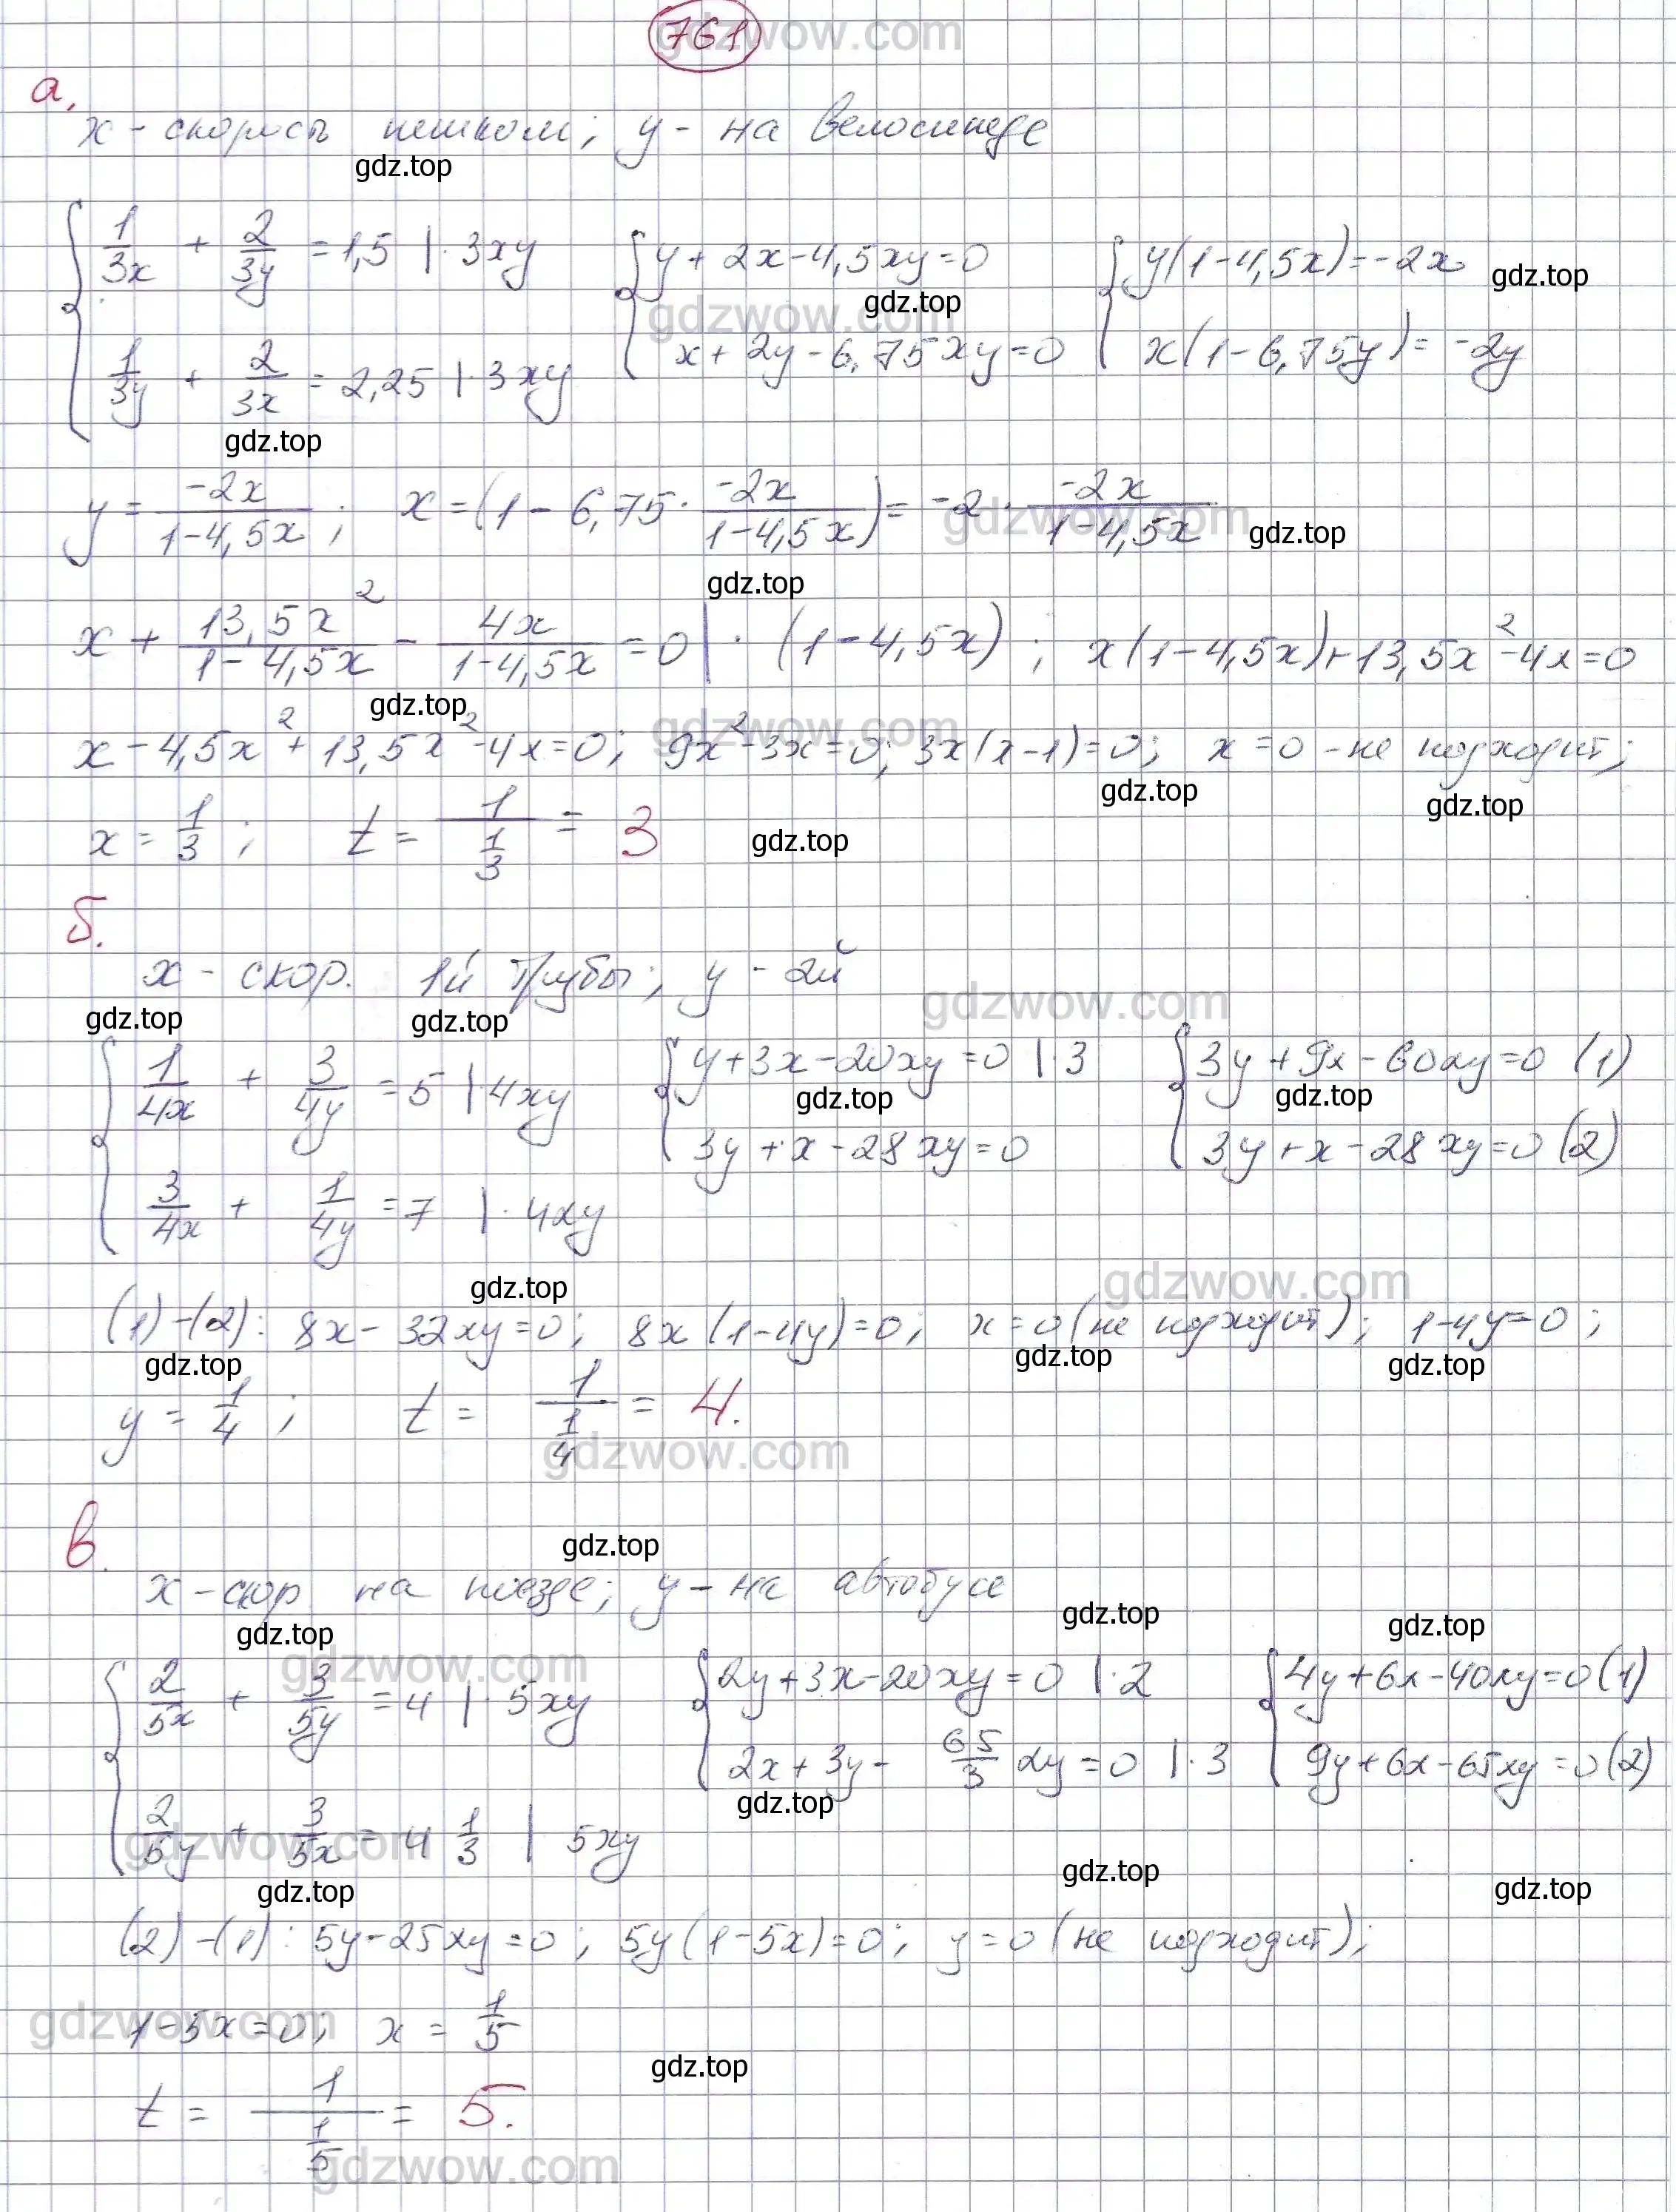 761
gdzwow.com
а,
x - скорость пешком; y - на велосипеде
gdz.top
{ 1/3x + 2/3y = 1,5 |· 3xy { y + 2x - 4,5xy = 0 { y(1 - 4,5x) = -2x
gdz.top gdz.top
gdzwow.com
1/3y + 2/3x = 2,25 |· 3xy x + 2y - 6,75xy = 0 x(1 - 6,75y) = -2y
gdz.top
y = -2x/1-4,5x ; x = (1 - 6,75 · -2x/1-4,5x) = -2 · -2x/1-4,5x
gdzwow.com
gdz.top gdz.top
x + 13,5x²/1-4,5x - 4x/1-4,5x = 0 | · (1 - 4,5x) ; x(1 - 4,5x) + 13,5x² - 4x = 0
gdz.top gdzwow.com
x - 4,5x² + 13,5x² - 4x = 0; 9x² - 3x = 0; 3x(x - 1) = 0; x = 0 - не подходит;
gdz.top gdz.top
x = 1/3 ; t = 1/(1/3) = 3 gdz.top
б.
x - скор. 1й трубы; y - 2й
gdzwow.com
gdz.top gdz.top
{ 1/4x + 3/4y = 5 | 4xy { y + 3x - 20xy = 0 |· 3 { 3y + 9x - 60xy = 0 (1)
gdz.top gdz.top
3/4x + 1/4y = 7 |· 4xy 3y + x - 28xy = 0 3y + x - 28xy = 0 (2)
gdz.top gdzwow.com
(1) - (2): 8x - 32xy = 0; 8x(1 - 4y) = 0; x = 0 (не подходит); 1 - 4y = 0;
gdz.top gdz.top gdz.top
y = 1/4 ; t = 1/(1/4) = 4.
gdzwow.com
в.
gdz.top
x - скор на поезде; y - на автобусе
gdz.top gdz.top gdz.top
gdzwow.com
{ 2/5x + 3/5y = 4 |· 5xy { 2y + 3x - 20xy = 0 |· 2 { 4y + 6x - 40xy = 0 (1)
2x + 3y - 65/3 xy = 0 |· 3 9y + 6x - 65xy = 0 (2)
gdz.top
2/5y + 3/5x = 4 1/3 | 5xy
gdzwow.com
gdz.top gdz.top gdz.top
(2) - (1): 5y - 25xy = 0; 5y(1 - 5x) = 0; y = 0 (не подходит);
gdzwow.com
1 - 5x = 0; x = 1/5
gdz.top
t = 1/(1/5) = 5.
gdzwow.com